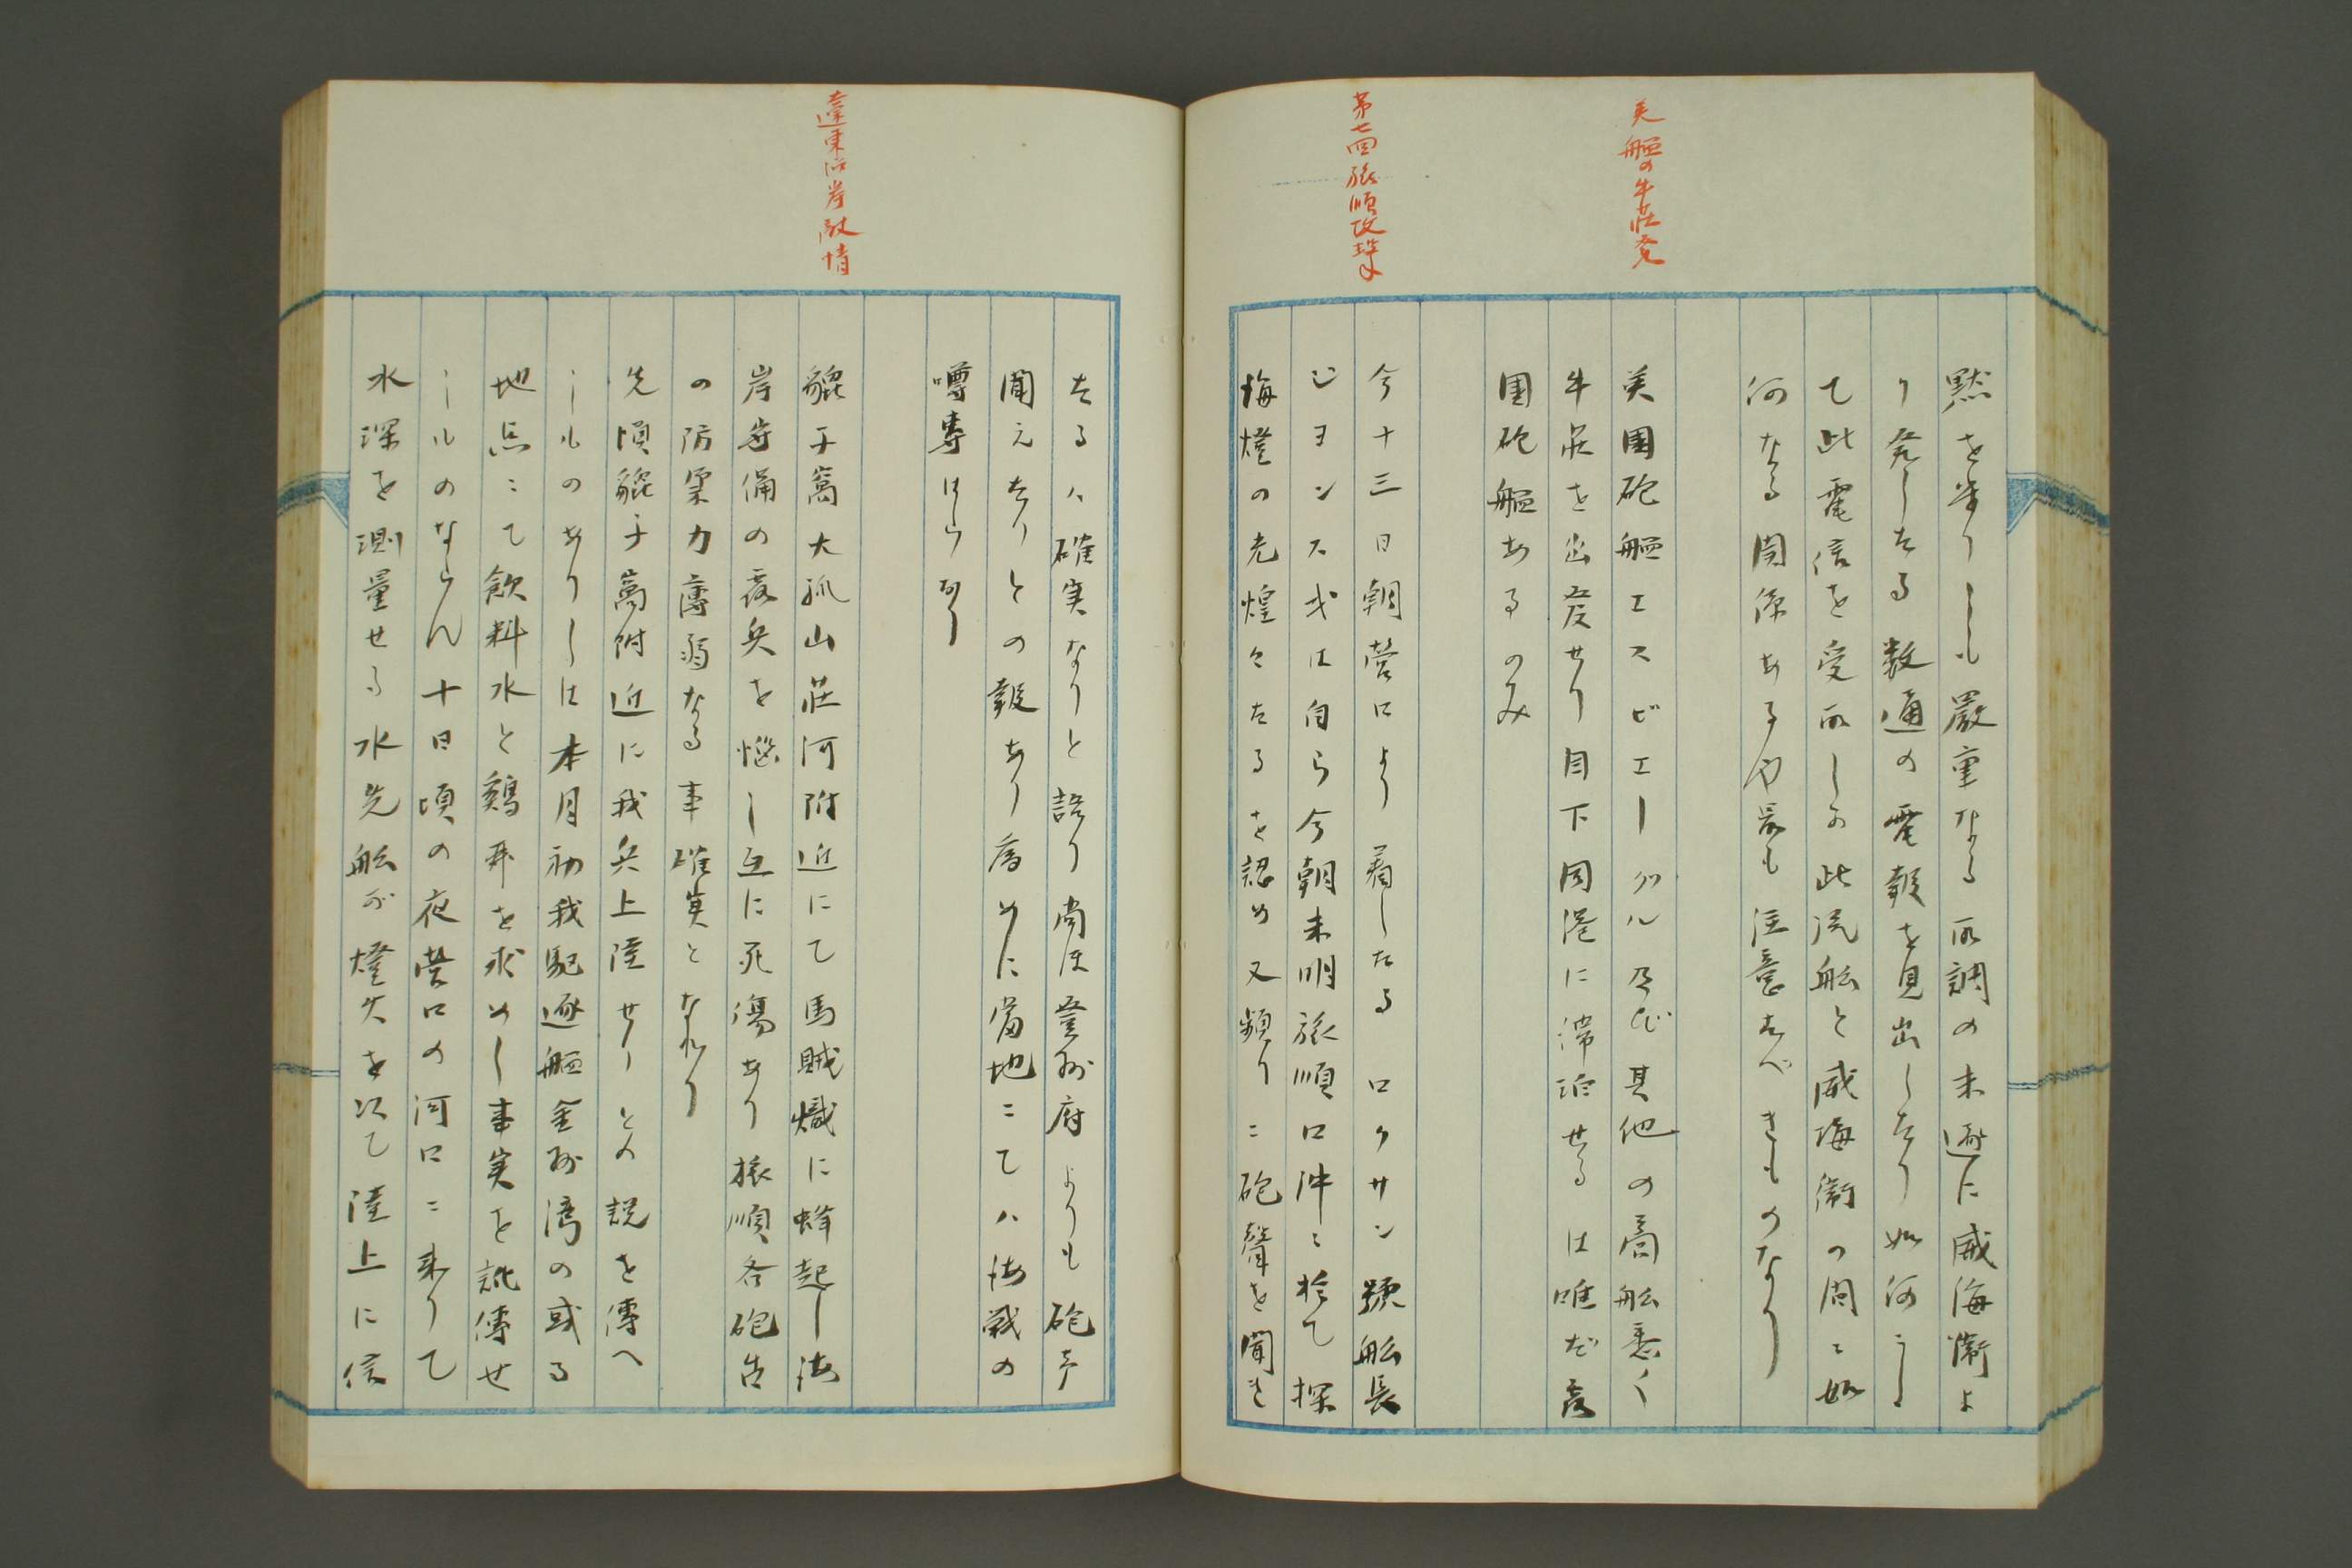 英艦の牛荘発
第七回旅順攻撃
黙を守りしも厳重なる取調の末遂に威海衛よ
り発したる数通の電報を見出したり如何にし
て此電信を受取しか此汽船と威海衛の間に如
何なる関係あるや最も注意すべきものなり
英国砲艦エスピエーグル及び其他の商舩悉く
牛荘を出発せり目下同港に滞泊せるは唯だ露
国砲艦あるのみ
今十三日朝営口より着したるロクサン號舩長
ジヨンス氏は自ら今朝未明旅順口沖に於て探
海燈の光煌々たるを認め又頻りに砲聲を聞き
遼東沿岸敵情
たるハ確実なりと語り尚ほ登州府よりも砲声
聞えたりとの報あり為めに當地にてハ海戦の
噂専はらなり
貔子窩大孤山荘河附近にて馬賊熾に蜂起し海
岸守備の露兵を悩し互に死傷あり旅順各砲台
の防禦力薄弱なる事確実となれり
先頃貔子窩附近に我兵上陸せりとの説を傳へ
しものありしは本月初我駆逐艦金州湾の或る
地点にて飲料水と鶏卵を求めし事実を訛傳せ
しものならん十日頃の夜営口の河口に来りて
水深を測量せる水先舩が燈火を以て陸上に信